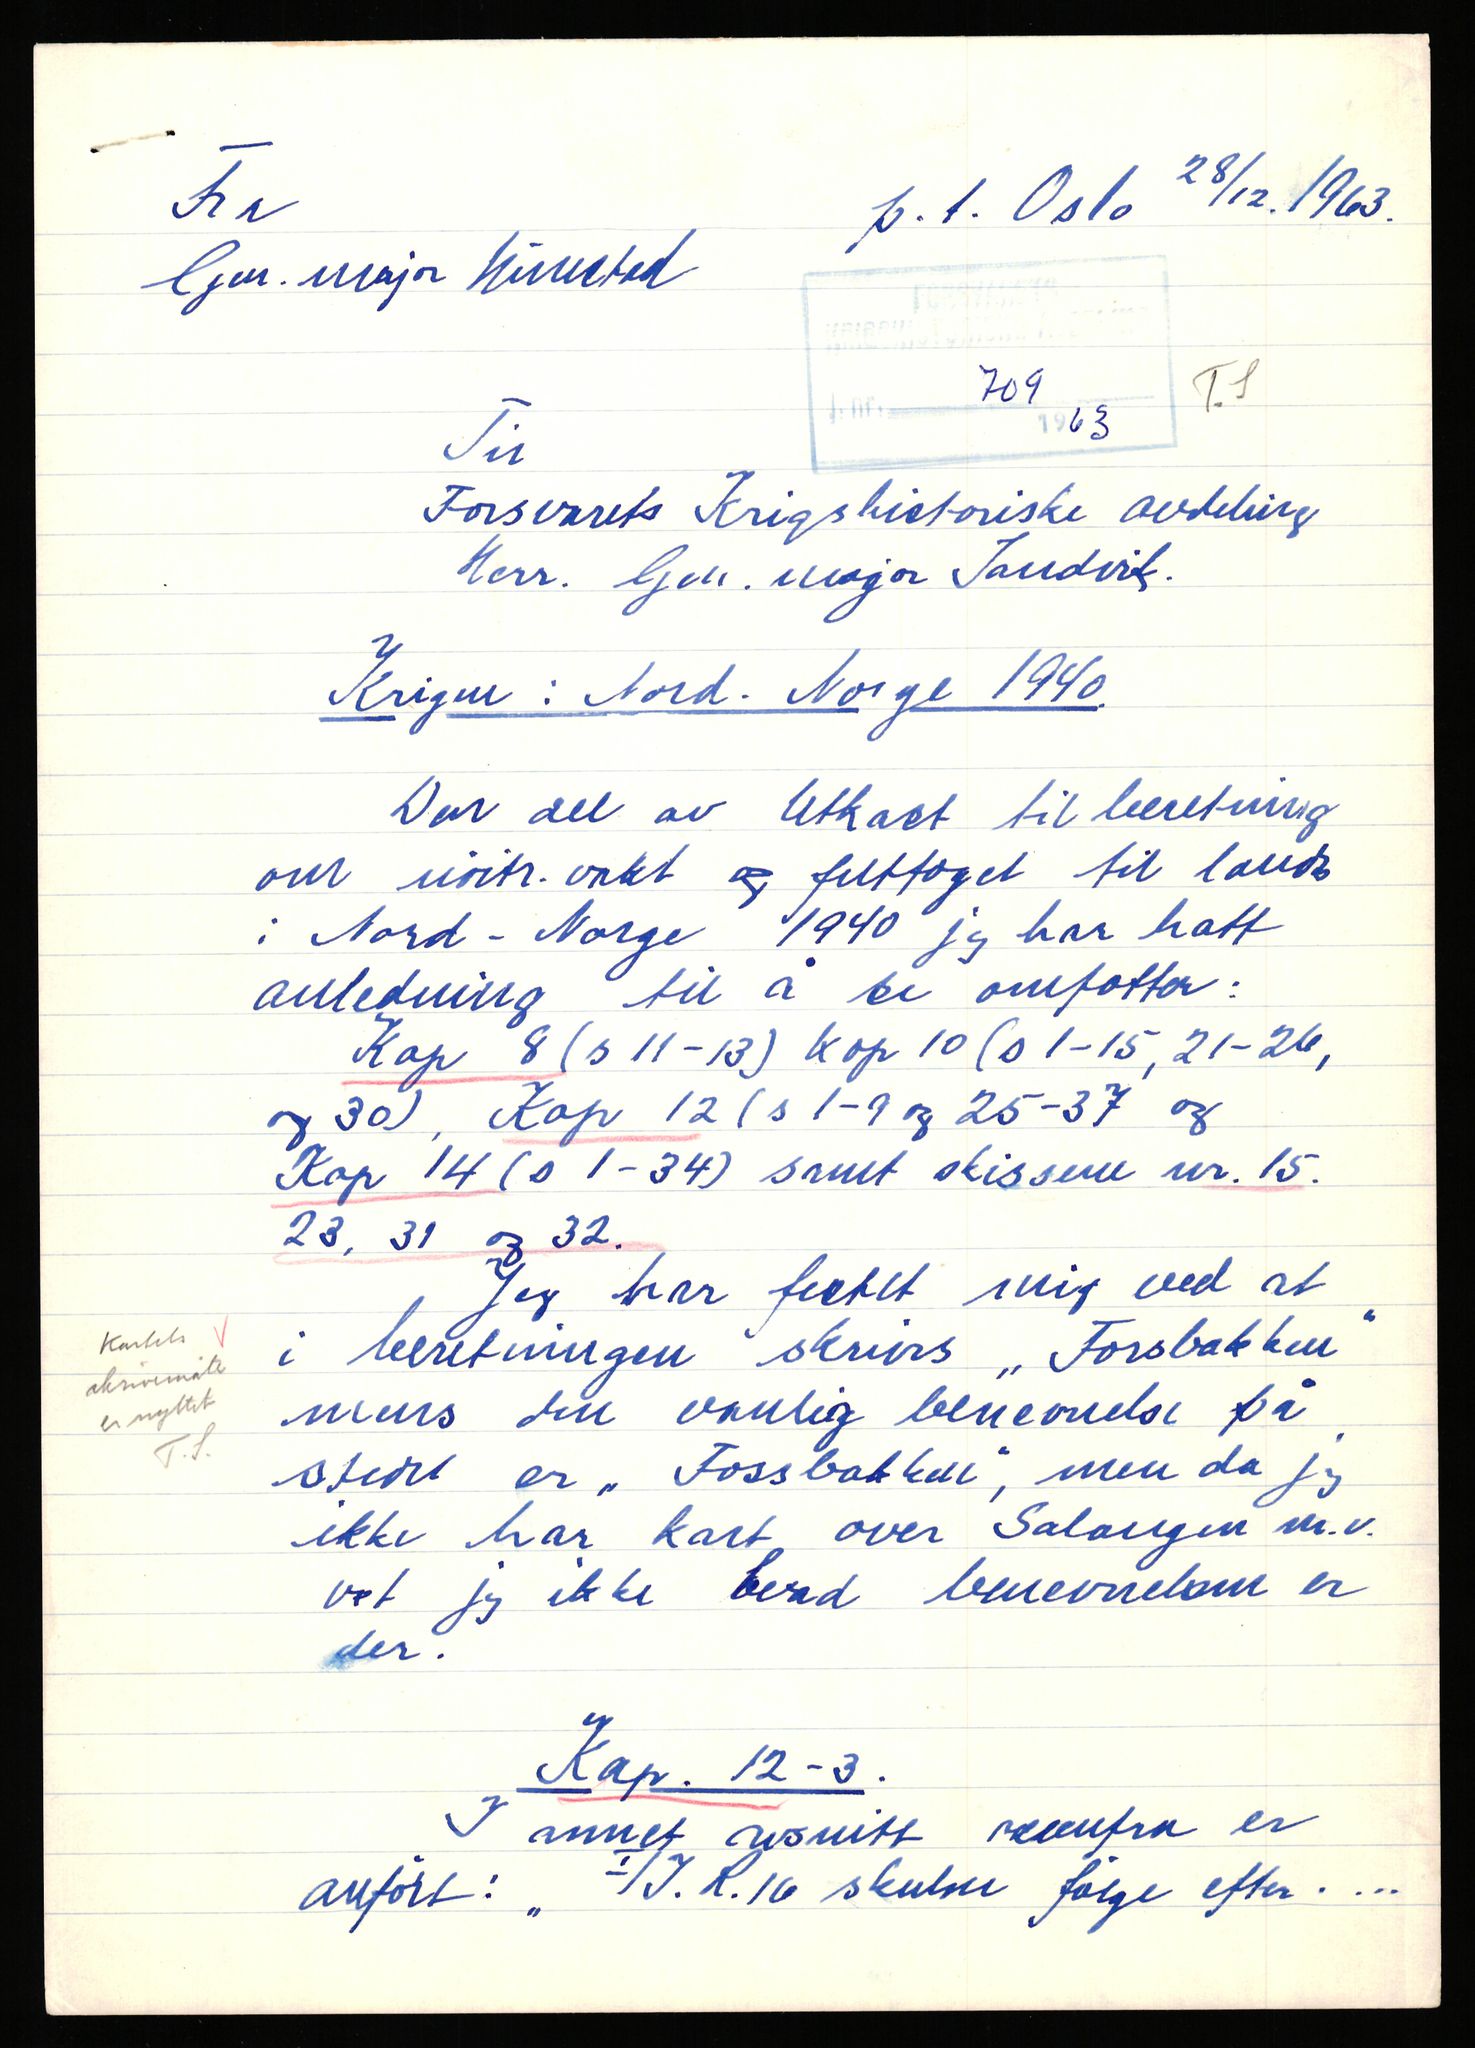 Fra
p.t. Oslo 28/12. 1963.
Gen. major Hunstad
709
J.nr.
1963
T.S
Til
Forsvarets Krigshistoriske avdeling
Herr. Gen. major Sandvik.
Krigen i Nord-Norge 1940.
Den del av Utkast til beretning
om nöitr. vakt og felttoget til lands
i Nord-Norge 1940 jeg har hatt
anledning til å se omfatter:
Kap 8 (s 11-13) kap 10 (s 1-15, 21-26,
og 30), Kap 12 (s 1-9 og 25-37 og
Kap 14 (s 1-34) samt skissene nr. 15.
23, 31 og 32.
Jeg har festet mig ved at
i beretningen skrives „Forsbakken"
mens den vanlig benevnelse på
stedet er „Fossbakken", men da jeg
ikke har kart over Salangen m.v.
vet jeg ikke hvad benevnelsen er
der.
Kartets
skrivemåte
er nyttet
T.S.
Kap. 12-3.
I annet avsnitt ovenfra er
anført: „I/I.R.16 skulde følge efter....